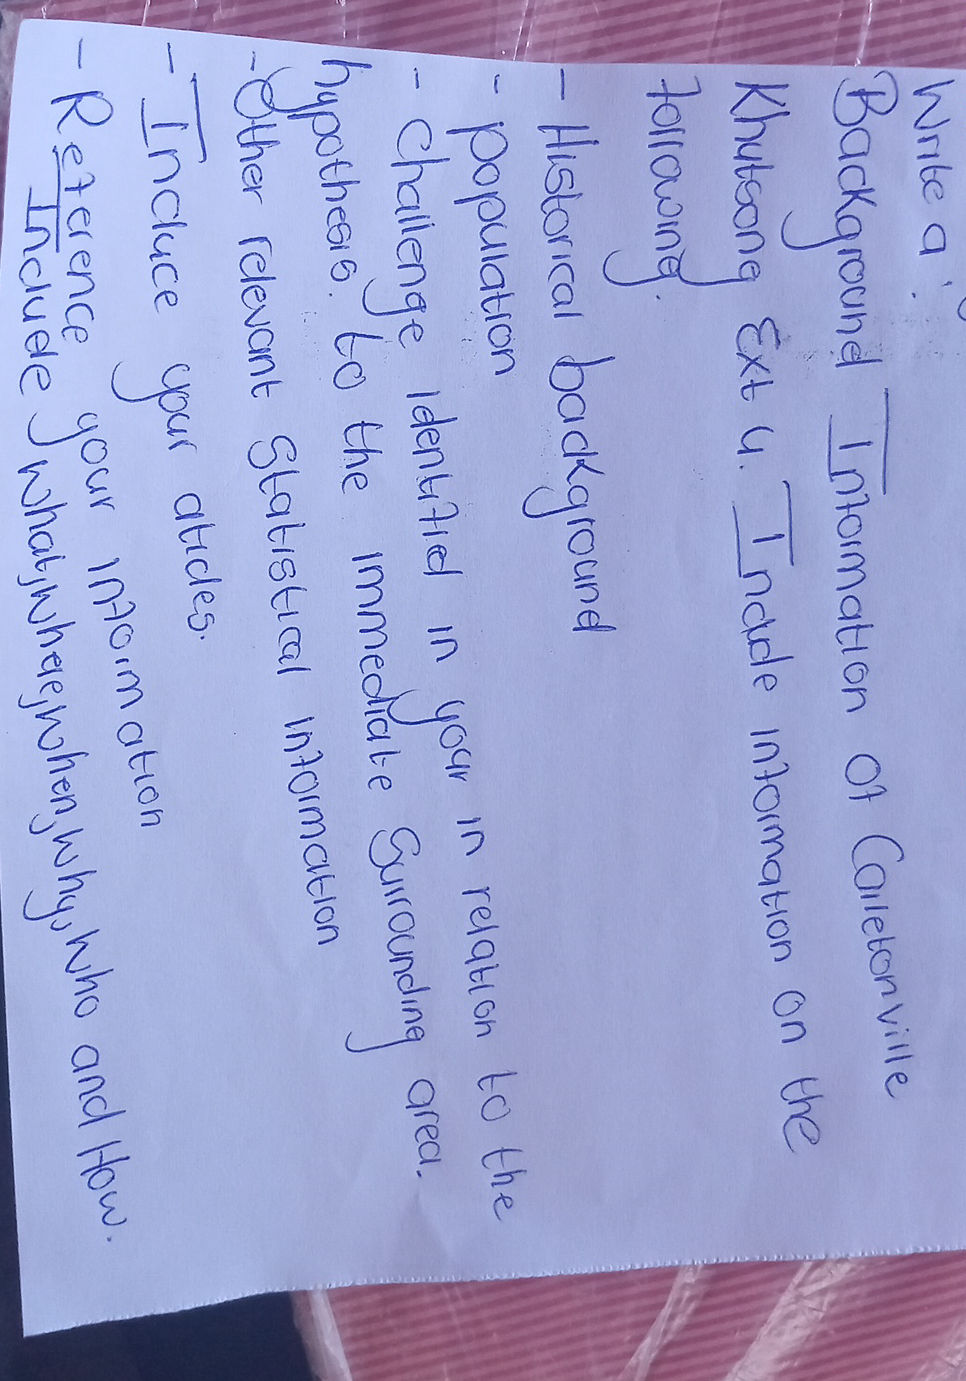 Write a
Background Information of Carletonville
Khutsong Ext 4. Include information on the
following.
- Historical background
- population
- Challenge identified in your in relation to the
hypothesis. to the immediate Surrounding area.
- Other relevant Statistical information
- Include your aticles.
- Reference your information
Include, what, where, when, why, who and How.